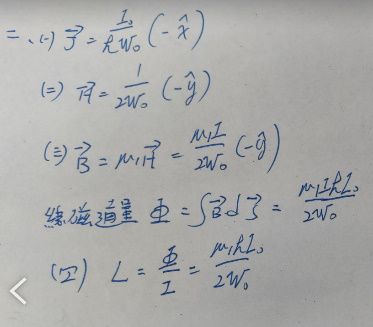 二、(一) J⃗ = I₀/(hW₀) (-x̂)
(二) H⃗ = 1/(2W₀) (-ŷ)
(三) B⃗ = μ₁H⃗ = μ₁I/(2W₀) (-ŷ)
總磁通量 Φ = ∫B⃗ d s⃗ = μ₁IhL₀/(2W₀)
(四) L = Φ/I = μ₁hL₀/(2W₀)